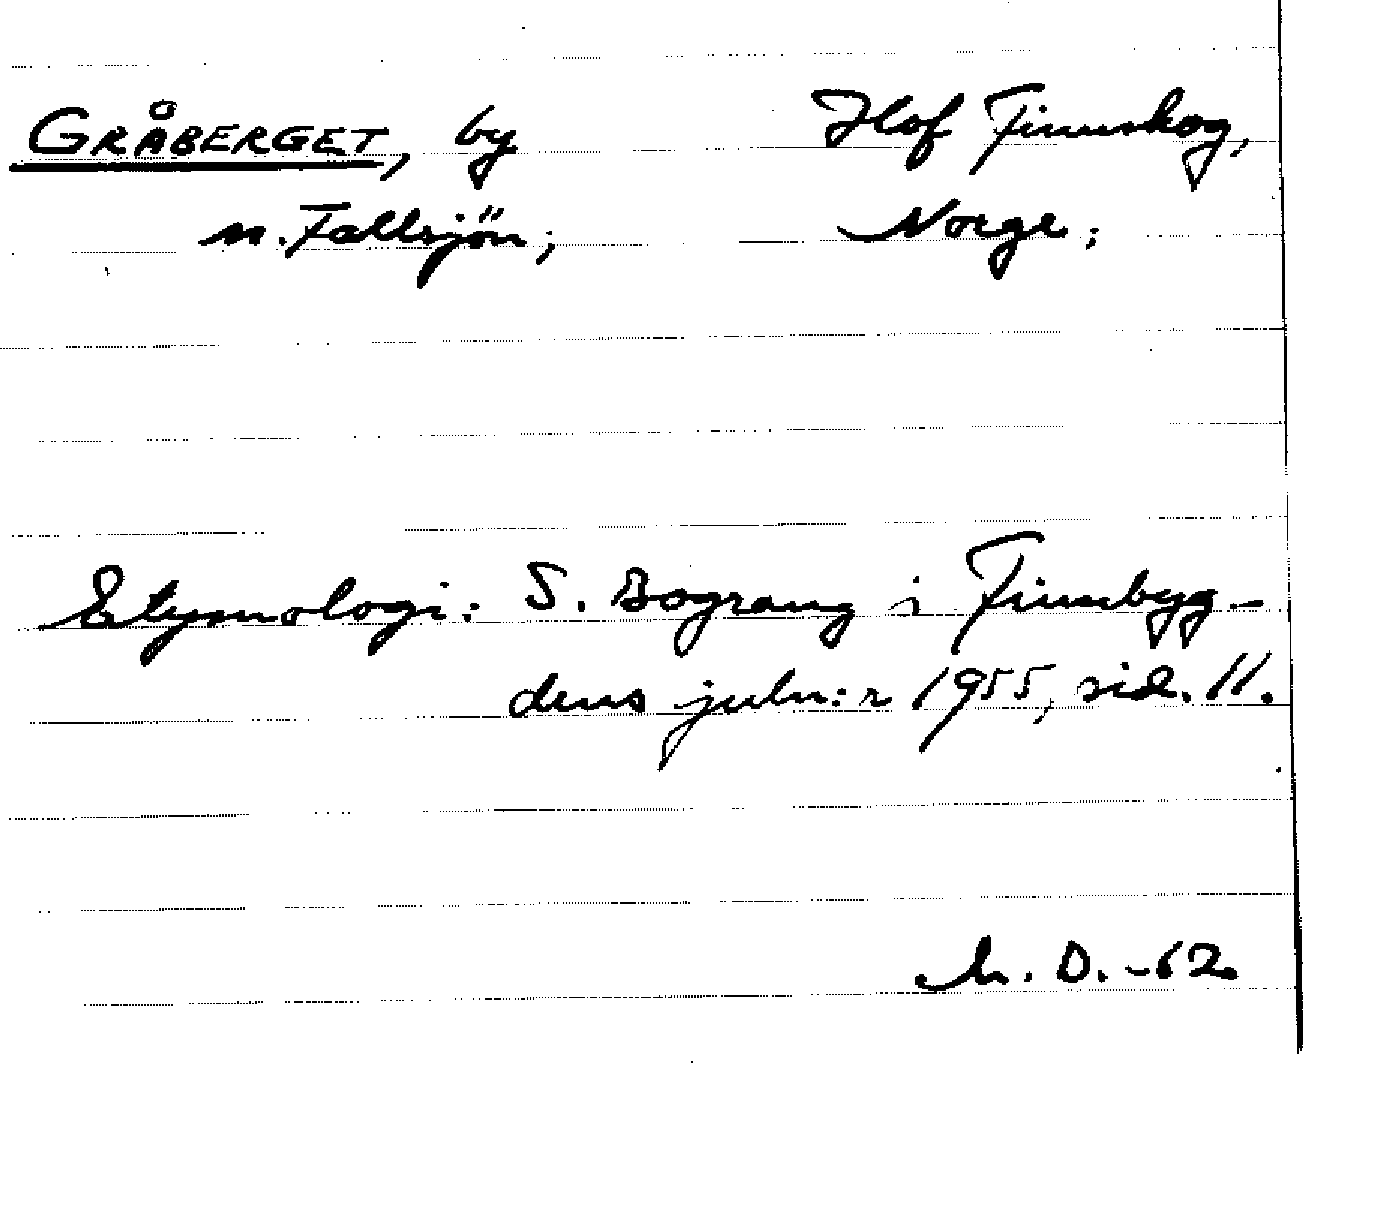 GRÅBERGET, by Hof Finnskog,
n. Fallsjön; Norge;
Etymologi: S. Bograng i Finnbyg-
dens juln:r 1955, sid. 11.
D. -62